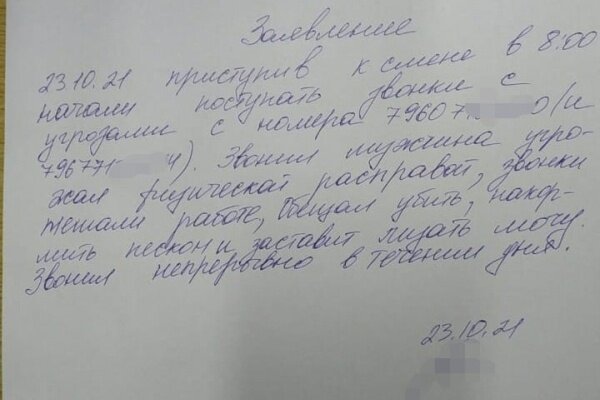 Заявление
23.10.21 приступив к смене в 8:00
начали поступать звонки с
угрозами с номера 7960 7 0/и
796771 4). Звонил мужчина угро-
жал физической расправой, звонки
мешали работе, обещал убить, накор-
мить песком и заставит лизать мочу.
Звонил непрерывно в течении дня.
23.10.21